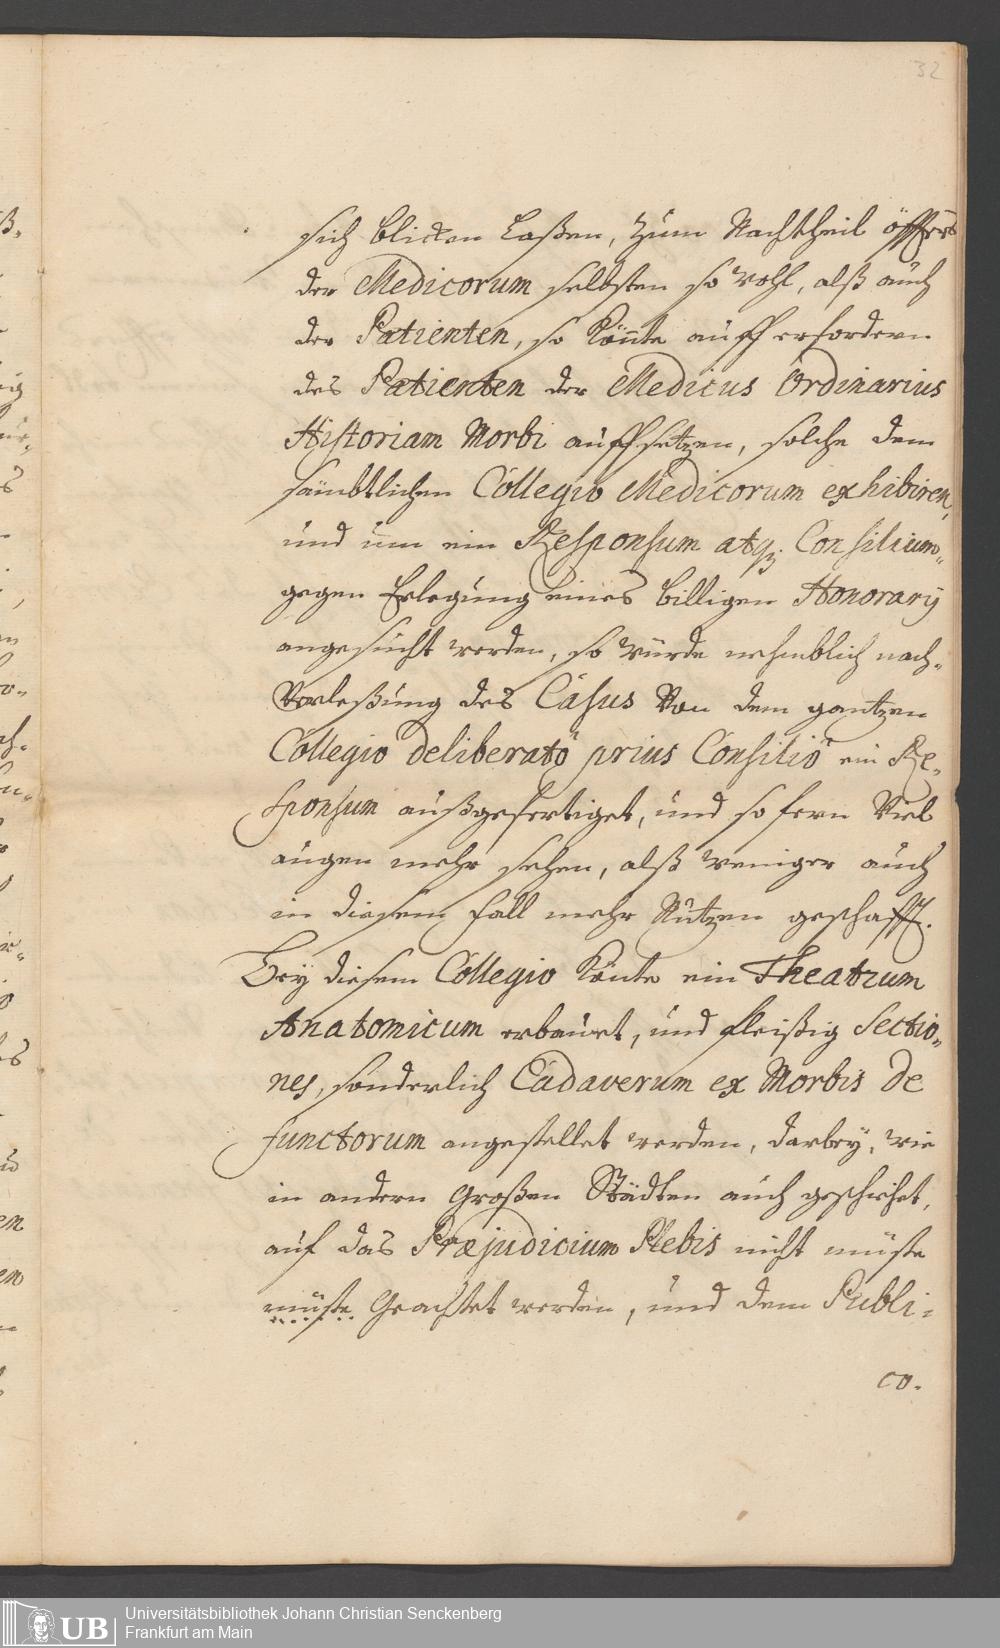 32
sich blicken laßen, zum Nachtheil öffters
der Medicorum selbsten so wohl, alß auch
der Patienten, so könte auff erfordern
des Patienten der Medicus Ordinarius
Historiam Morbi auffsetzen, solche dem
sämbtlichen Collegio Medicorum exhibiren,
und um ein Responsum atq; Consilium
gegen Erlegung eines billigen Honorarij
angesucht werden, so würde nehmblich nach-
Vorleßung des Casus Von dem gantzen
Collegio deliberato prius Consilio ein Re-
sponsum außgefertiget, und so fern Viel
augen mehr sehen, alß weniger auch
in diesem fall mehr Nutzen geschafft.
Bey diesem Collegio könte ein Theatrum
Anatomicum erbauet, und fleißig Sectio-
nes, sonderlich Cadaverum ex Morbis De
functorum angestellet werden, darbey, wie
in andern Großen Städten auch geschiehet,
auf das Præjudicium Plebis nicht müste
müste Geachtet werden, und dem Publi-
co.
UB
Universitätsbibliothek Johann Christian Senckenberg
Frankfurt am Main